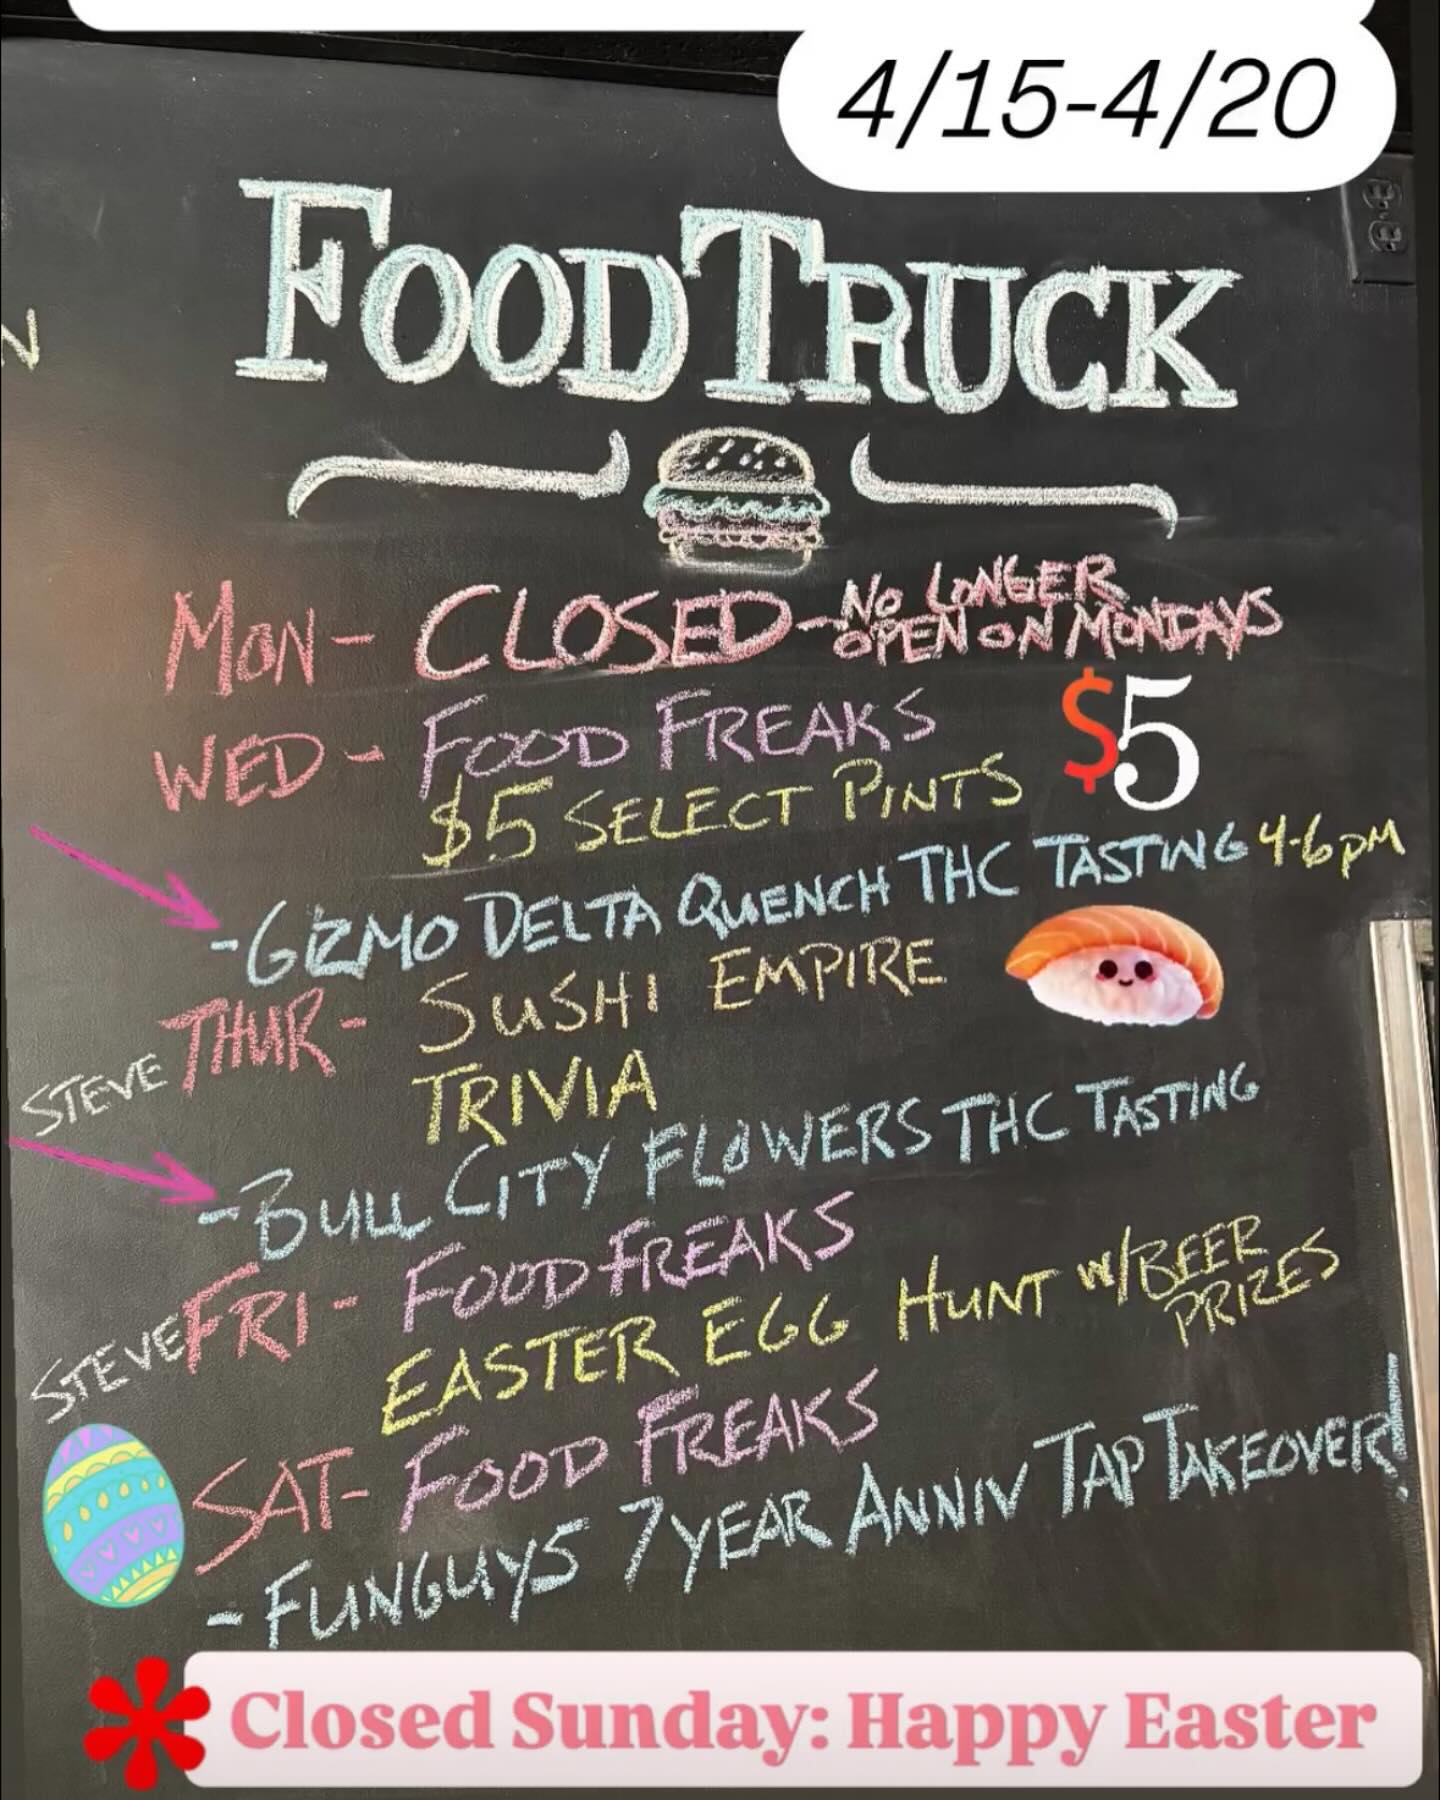 4/15-4/20
N
FOOD TRUCK
MON - CLOSED - NO LONGER
OPEN ON MONDAYS
WED - FOOD FREAKS
$5
$5 SELECT PINTS
- GIZMO DELTA QUENCH THC TASTING 4-6PM
THUR - SUSHI EMPIRE
STEVE
TRIVIA
- BULL CITY FLOWERS THC TASTING
FRI - FOOD FREAKS
STEVE
EASTER EGG HUNT W/BEER
PRIZES
SAT - FOOD FREAKS
- FUNGUYS 7 YEAR ANNIV TAP TAKEOVER!
* Closed Sunday: Happy Easter